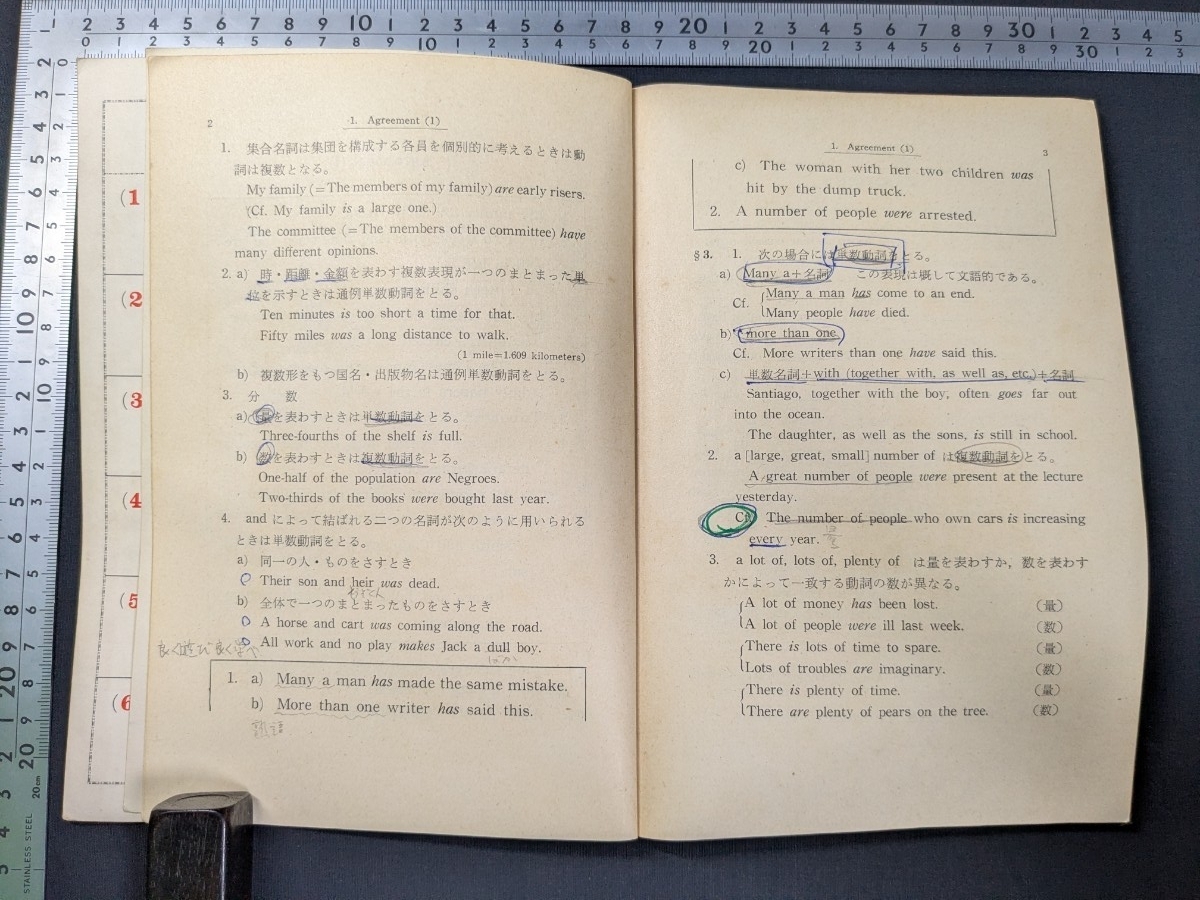 2
1. Agreement (1)
1. 集合名詞は集団を構成する各員を個別的に考えるときは動
詞は複数となる。
My family (=The members of my family) are early risers.
(Cf. My family is a large one.)
The committee (=The members of the committee) have
many different opinions.
2. a) 時・距離・金額を表わす複数表現が一つのまとまった単
位を示すときは通例単数動詞をとる。
Ten minutes is too short a time for that.
Fifty miles was a long distance to walk.
(1 mile=1.609 kilometers)
b) 複数形をもつ国名・出版物名は通例単数動詞をとる。
3. 分 数
a) 量を表わすときは単数動詞をとる。
Three-fourths of the shelf is full.
b) 数を表わすときは複数動詞をとる。
One-half of the population are Negroes.
Two-thirds of the books were bought last year.
4. and によって結ばれる二つの名詞が次のように用いられる
ときは単数動詞をとる。
a) 同一の人・ものをさすとき
Their son and heir was dead.
b) 全体で一つのまとまったものをさすとき
A horse and cart was coming along the road.
All work and no play makes Jack a dull boy.
良く遊び良く学べ
ばか
1. a) Many a man has made the same mistake.
b) More than one writer has said this.
熟語
1. Agreement (1)
3
c) The woman with her two children was
hit by the dump truck.
2. A number of people were arrested.
§3. 1. 次の場合には単数動詞をとる。
a) Many a+名詞 この表現は概して文語的である。
Cf. Many a man has come to an end.
Many people have died.
b) more than one
Cf. More writers than one have said this.
c) 単数名詞+with (together with, as well as, etc.)+名詞
Santiago, together with the boy, often goes far out
into the ocean.
The daughter, as well as the sons, is still in school.
2. a [large, great, small] number of は複数動詞をとる。
A great number of people were present at the lecture
yesterday.
Cf. The number of people who own cars is increasing
every year.
3. a lot of, lots of, plenty of は量を表わすか，数を表わす
かによって一致する動詞の数が異なる。
A lot of money has been lost. (量)
A lot of people were ill last week. (数)
There is lots of time to spare. (量)
Lots of troubles are imaginary. (数)
There is plenty of time. (量)
There are plenty of pears on the tree. (数)
(1
(2
(3
(4
(5
(6
20cm
STAINLESS STEEL